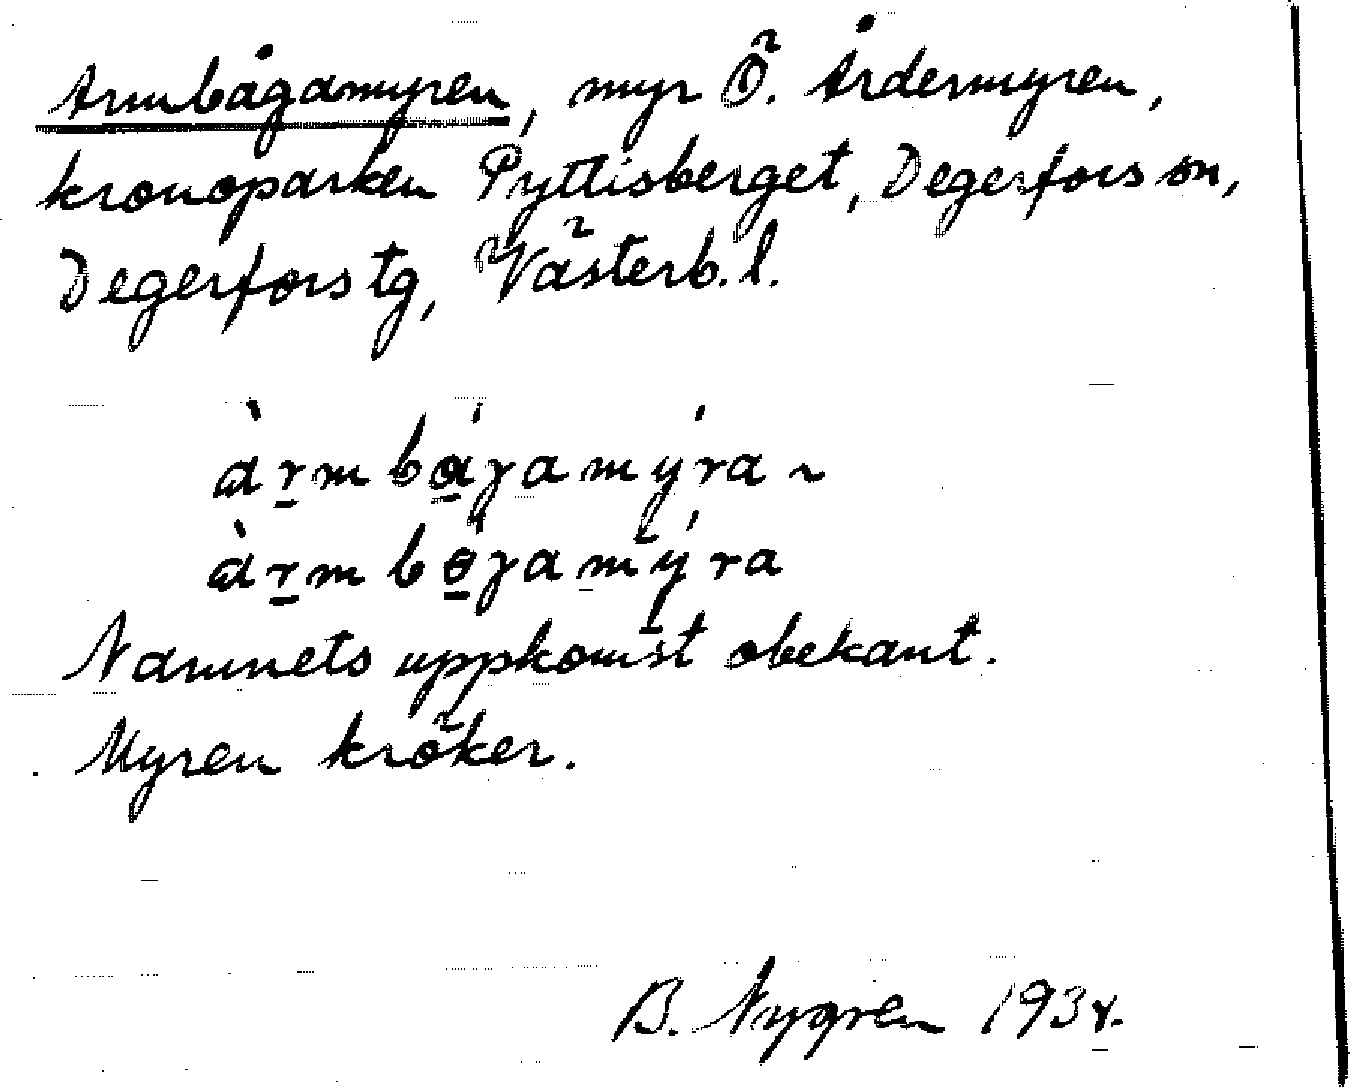 Armbågamyren, myr Ö. Årdermyren,
kronoparken Pyttisberget, Degerfors sn,
Degerfors tg, Västerb. l.
àr̠m bá̠ɣamýra ~
àr̠m bó̠ɣamýra
Namnets uppkomst obekant.
Myren kröker.
B. Nygren 1934.